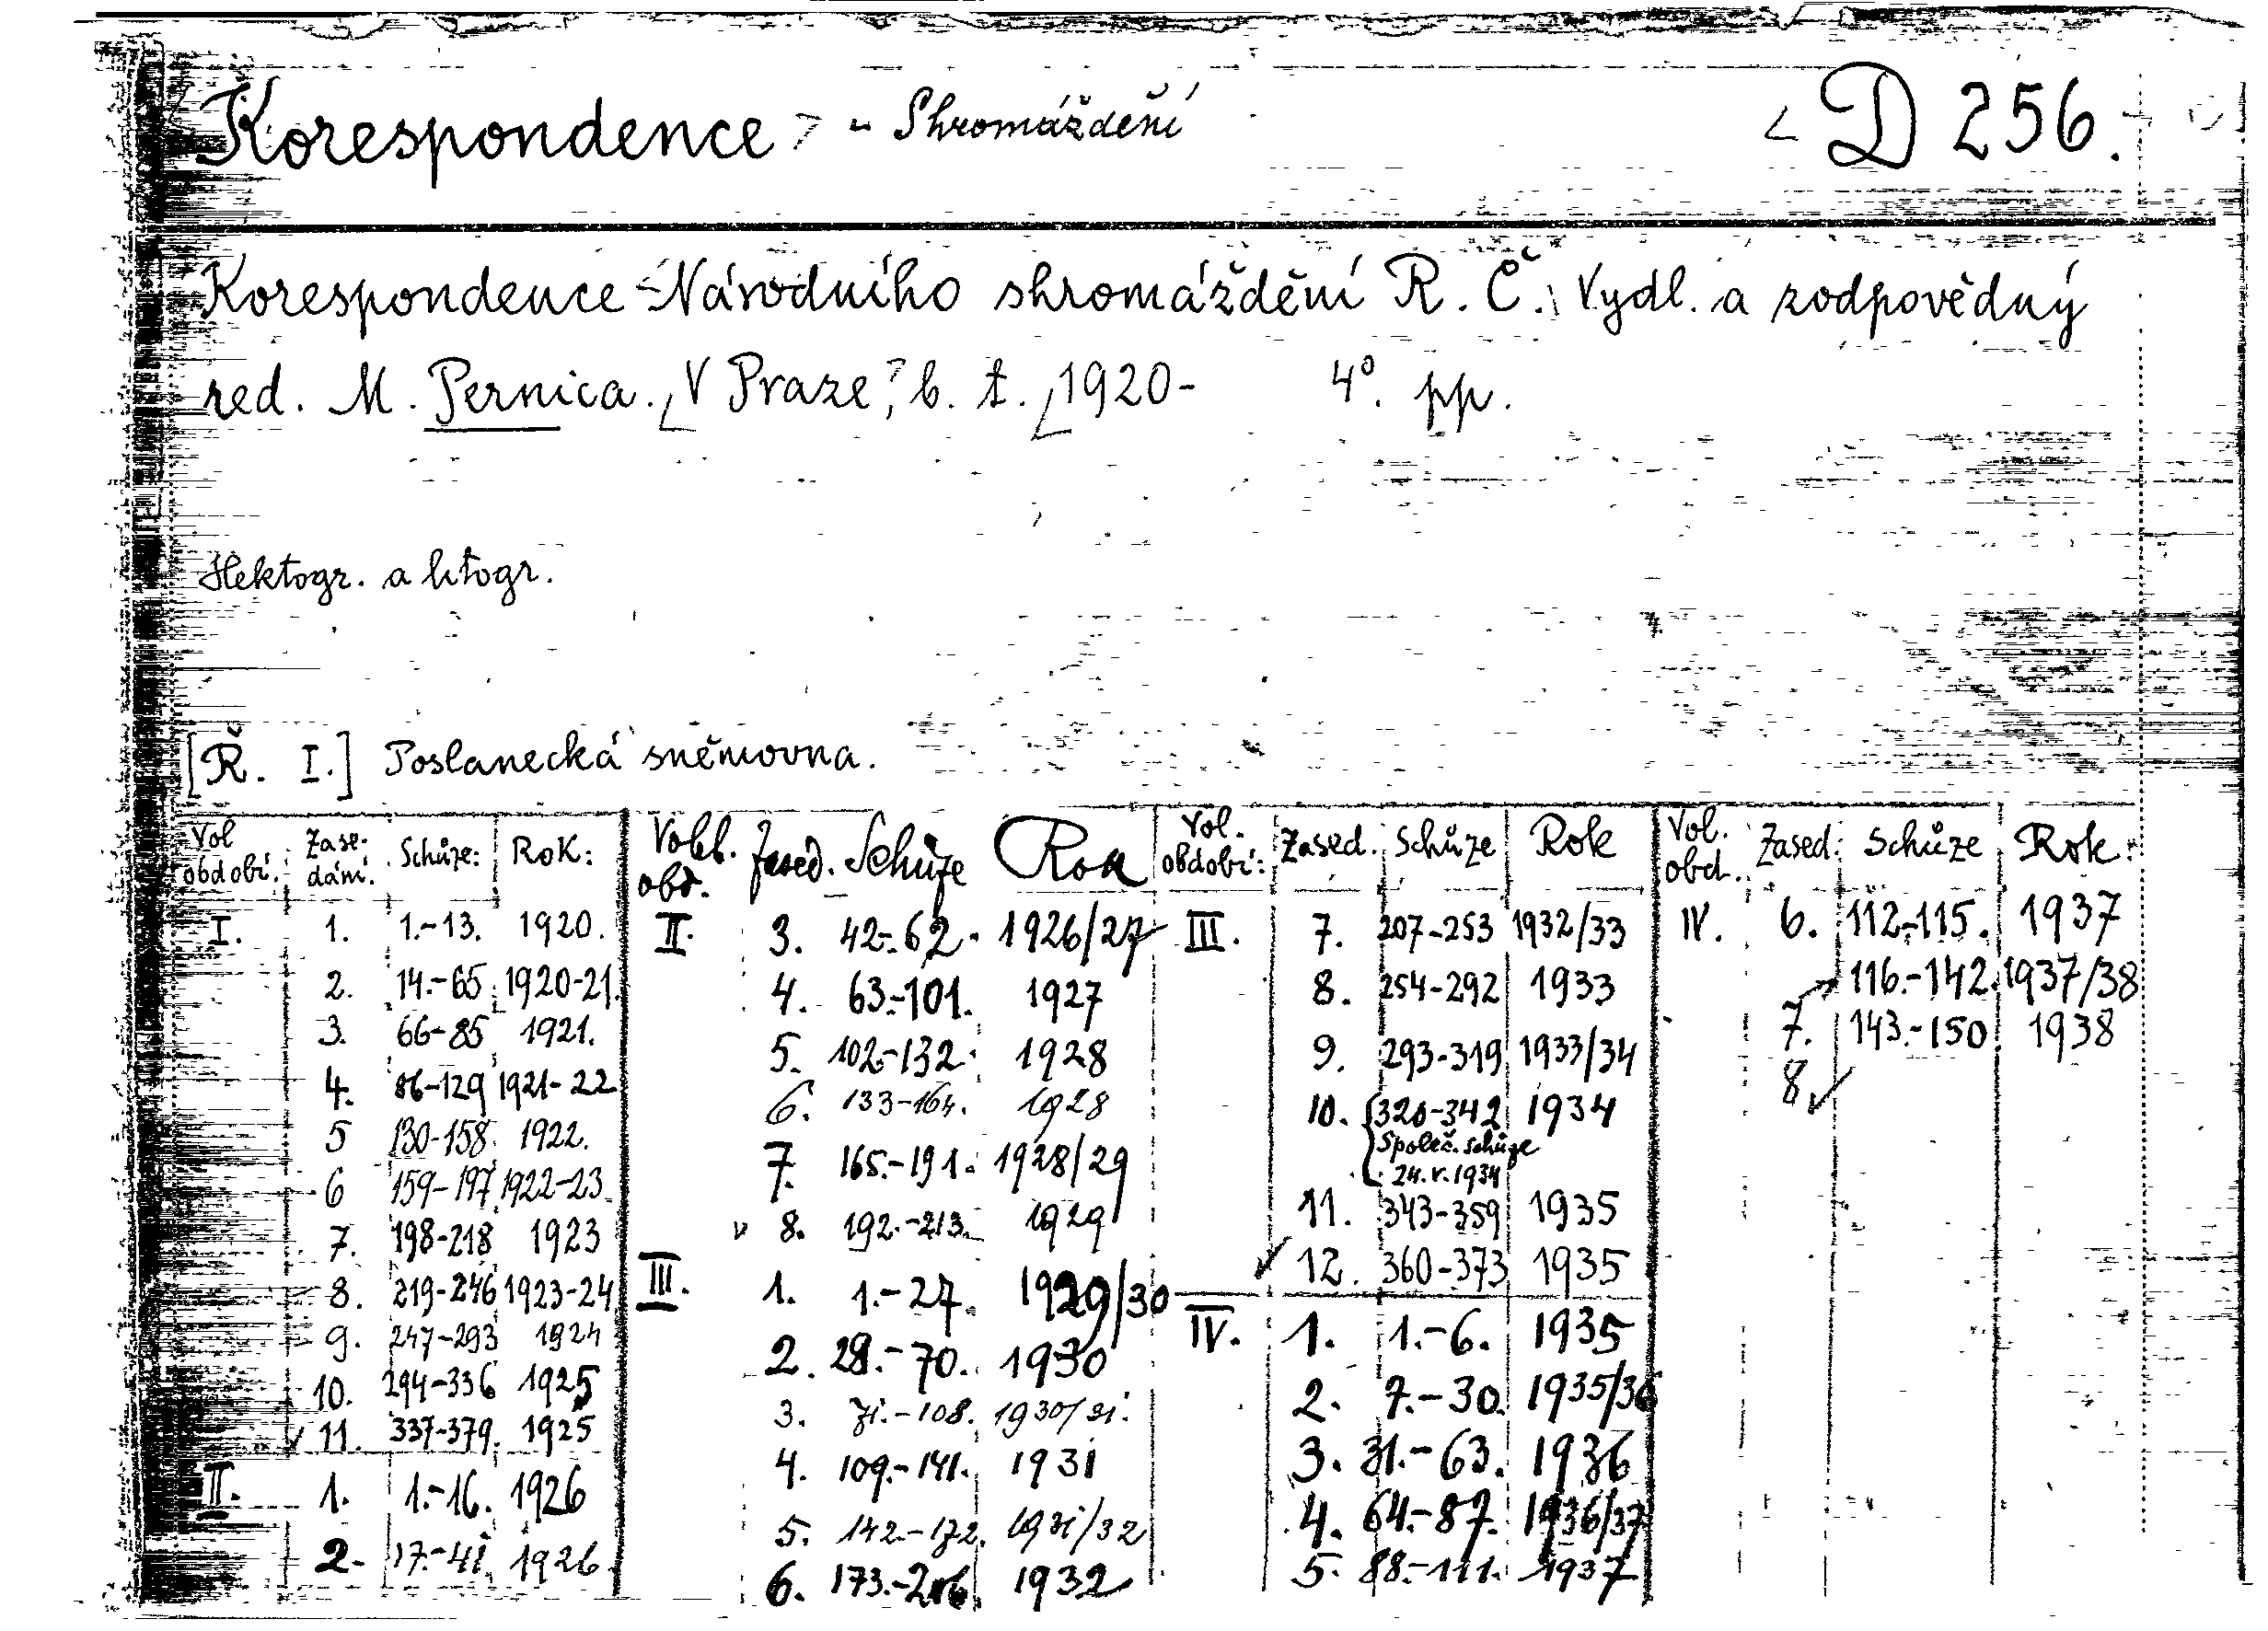 Korespondence - Shromáždění D 256.
Korespondence Národního shromáždění R. Č. Vydl. a zodpovědný
red. M. Pernica. V Praze, b. t. 1920- 4°. pp.
Hektogr. a litogr.
[Ř. I.] Poslanecká sněmovna.
Vol období. Zase-dání. Schůze: Rok:
I. 1. 1.-13. 1920.
2. 14.-65 1920-21.
3. 66-85 1921.
4. 86-129 1921-22
5 130-158 1922.
6 159-197 1922-23
7. 198-218 1923
8. 219-246 1923-24
9. 247-293 1924
10. 294-336 1925
11. 337-379. 1925
II. 1. 1.-16. 1926
2. 17.-41. 1926
Vol. obd. Zased. Schůze Rok
II. 3. 42-62. 1926/27
4. 63.-101. 1927
5. 102.-132. 1928
6. 133-164. 1928
7. 165.-191. 1928/29
8. 192.-213. 1929
III. 1. 1.-27. 1929/30
2. 28.-70. 1930
3. 71.-108. 1930/31.
4. 109.-141. 1931
5. 142.-172. 1931/32
6. 173.-206. 1932
Vol. období: Zased. Schůze Rok
III. 7. 207-253 1932/33
8. 254-292 1933
9. 293-319 1933/34
10. 320-342 1934
Společ. schůze
24. V. 1934
11. 343-359 1935
12. 360-373 1935
IV. 1. 1.-6. 1935
2. 7.-30. 1935/36
3. 31.-63. 1936
4. 64.-87. 1936/37
5. 88.-111. 1937
Vol. obd. Zased: Schůze Rok:
IV. 6. 112.-115. 1937
7. 116.-142. 1937/38
8 143.-150 1938